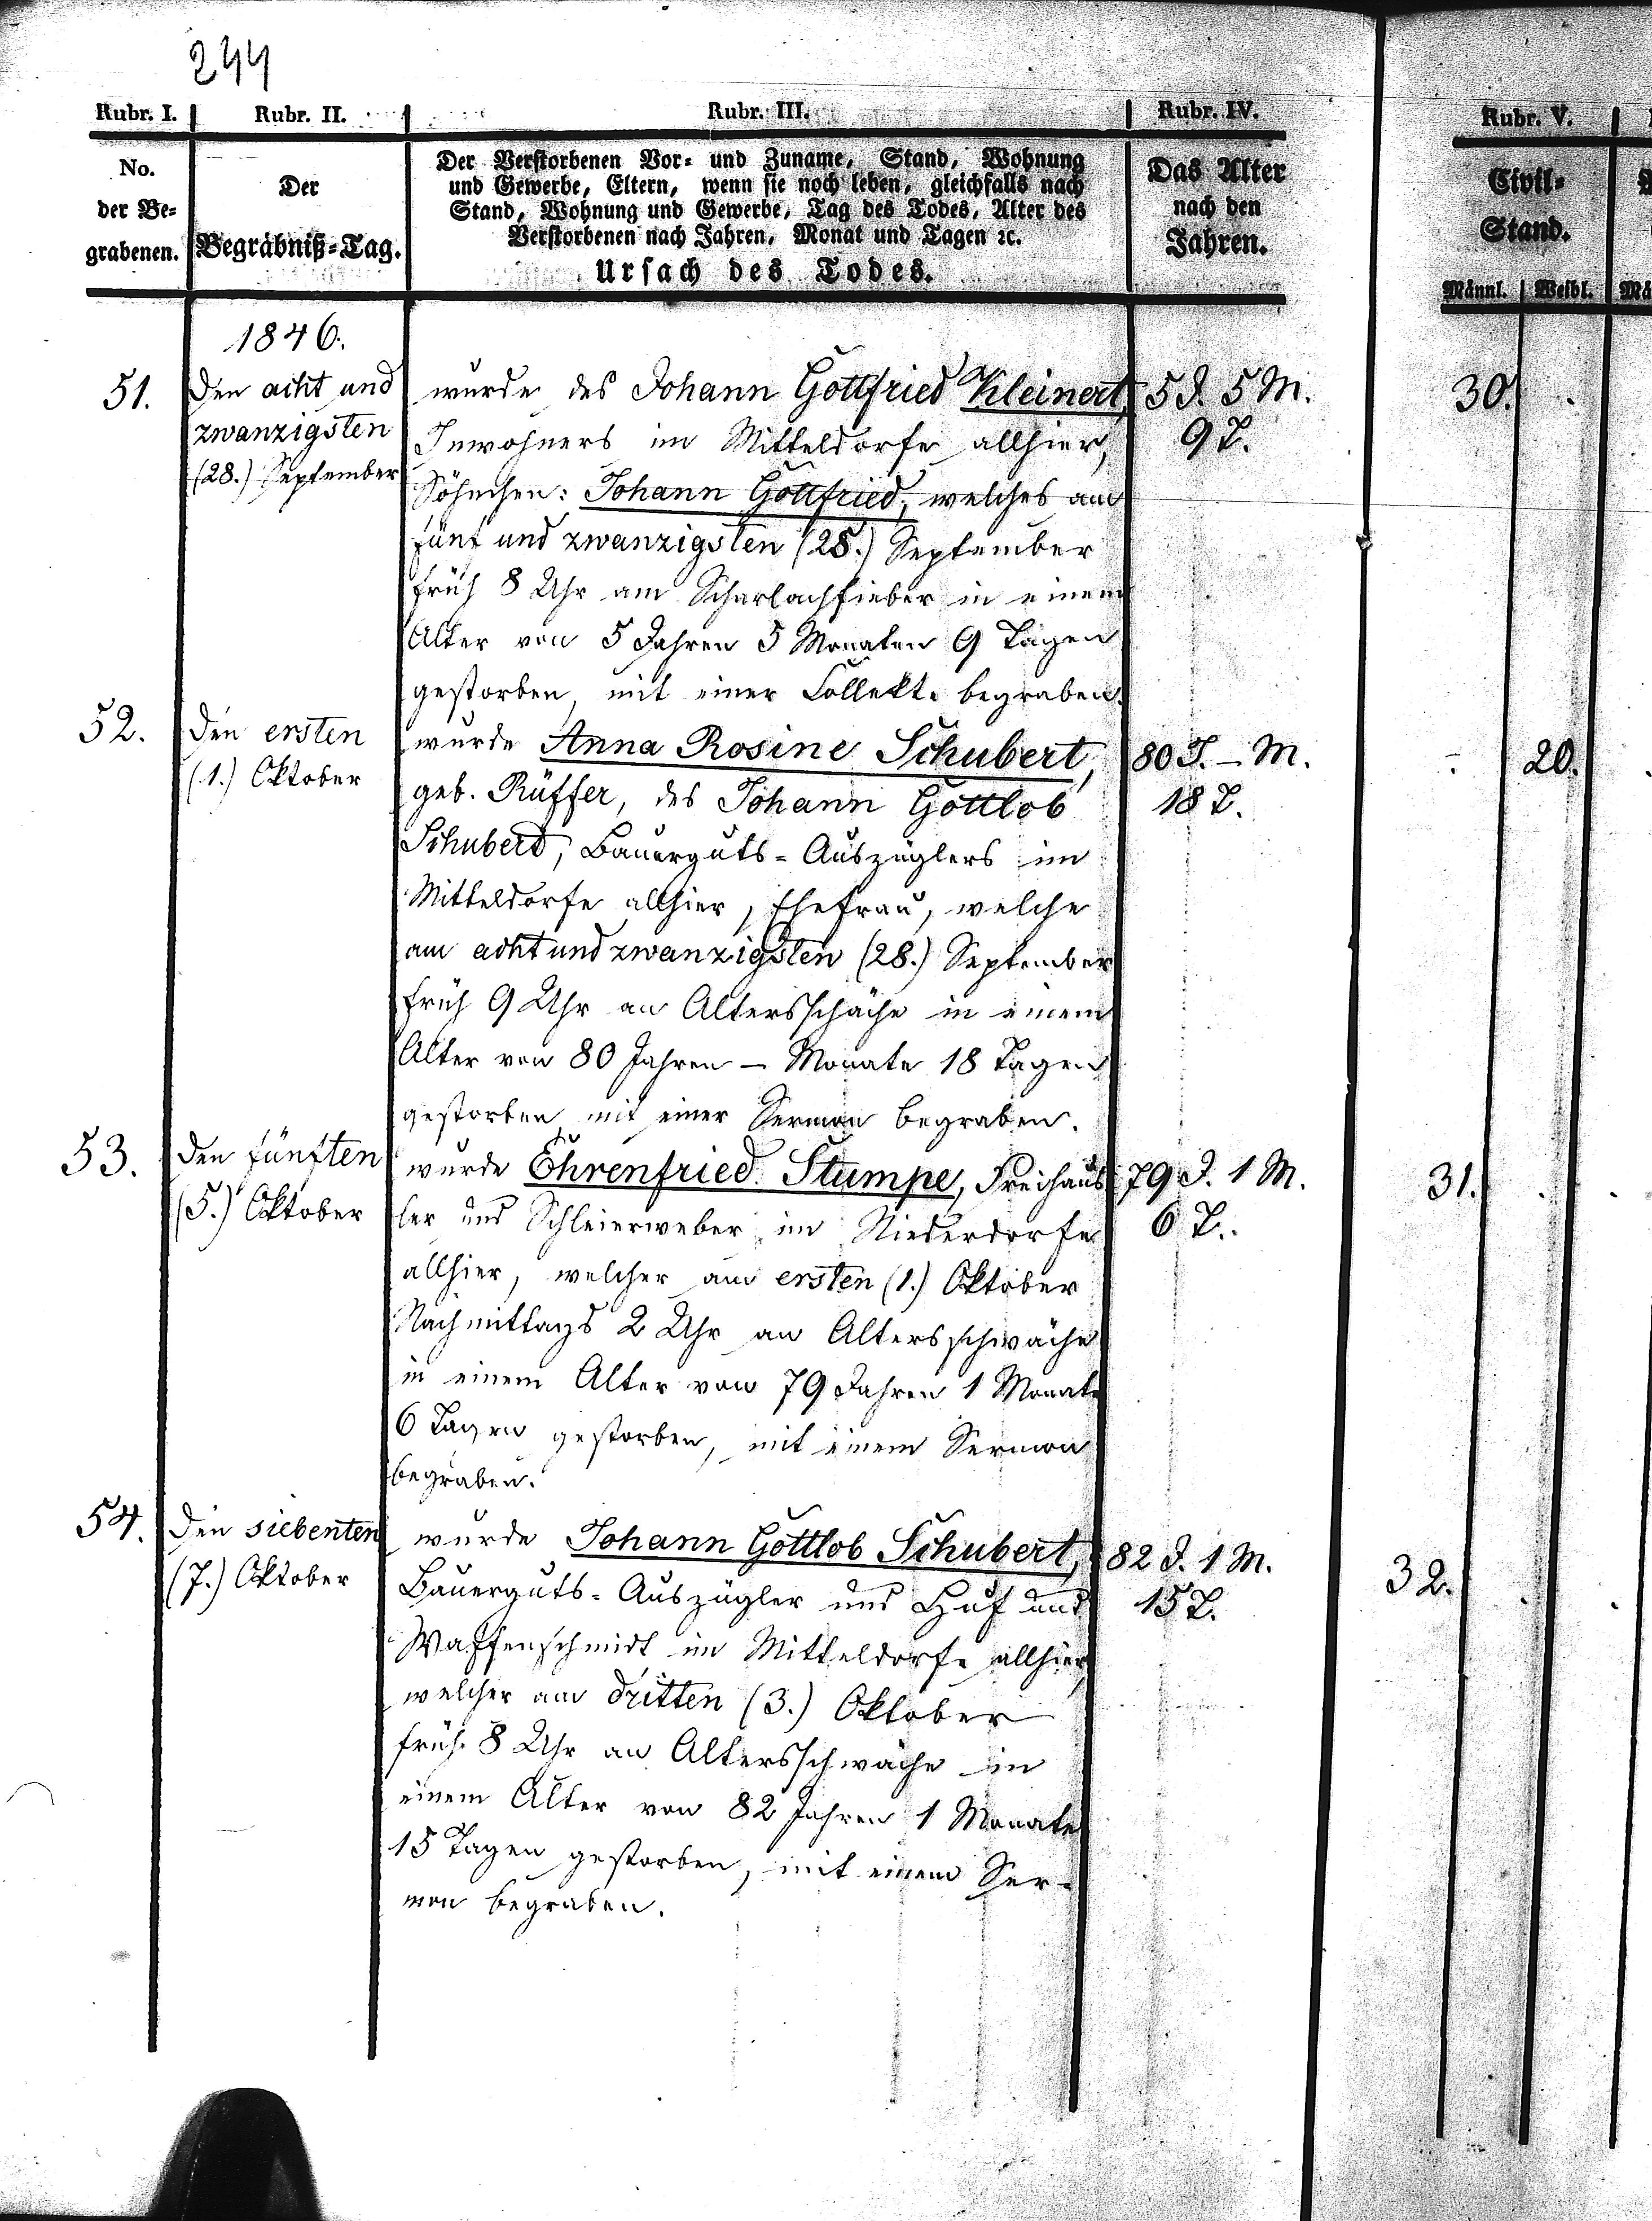 244
Rubr. I. Rubr. II. Rubr. III. Rubr. IV. Rubr. V.
No. der Be- grabenen.
Der Begräbniß-Tag.
Der Verstorbenen Vor- und Zuname, Stand, Wohnung
und Gewerbe, Eltern, wenn sie noch leben, gleichfalls nach
Stand, Wohnung und Gewerbe, Tag des Todes, Alter des
Verstorbenen nach Jahren, Monat und Tagen ꝛc.
Ursach des Todes.
Das Alter
nach den
Jahren.
Civil-
Stand.
Männl. Weibl.
1846.
51.
Den acht und
zwanzigsten
(28.) September
wurde des Johann Gottfried Kleinert,
Inwohners im Mitteldorfe allhier,
Söhnchen: Johann Gottfried, welches am
fünf und zwanzigsten (25.) September
früh 8 Uhr am Scharlachfieber in einem
Alter von 5 Jahren 5 Monaten 9 Tagen
gestorben, mit einer Collekte begraben.
5 J. 5 M.
9 T.
30.
52.
Den ersten
(1.) Oktober
wurde Anna Rosine Schubert,
geb. Rüffer, des Johann Gottlob
Schubert, Bauerguts-Auszüglers im
Mitteldorfe allhier, Ehefrau, welche
am acht und zwanzigsten (28.) September
früh 9 Uhr an Altersschäche in einem
Alter von 80 Jahren – Monate 18 Tagen
gestorben, mit einer Sermon begraben.
80 J. – M.
18 T.
20.
53.
Den fünften
(5.) Oktober
wurde Ehrenfried Stumpe, Freihäus
ler und Schleierweber im Niederdorfe
allhier, welcher am ersten (1.) Oktober
Nachmittags 2 Uhr an Altersschwäche
in einem Alter von 79 Jahren 1 Monate
6 Tagen gestorben, mit einem Sermon
begraben.
79 J. 1 M.
6 T.
31.
54.
Den siebenten
(7.) Oktober
wurde Johann Gottlob Schubert,
Bauerguts-Auszügler und Huf und
Waffenschmidt im Mitteldorfe allhier,
welcher am dritten (3.) Oktober
früh 8 Uhr an Altersschwäche in
einem Alter von 82 Jahren 1 Monate
15 Tagen gestorben, mit einem Ser-
mon begraben.
82 J. 1 M.
15 T.
32.